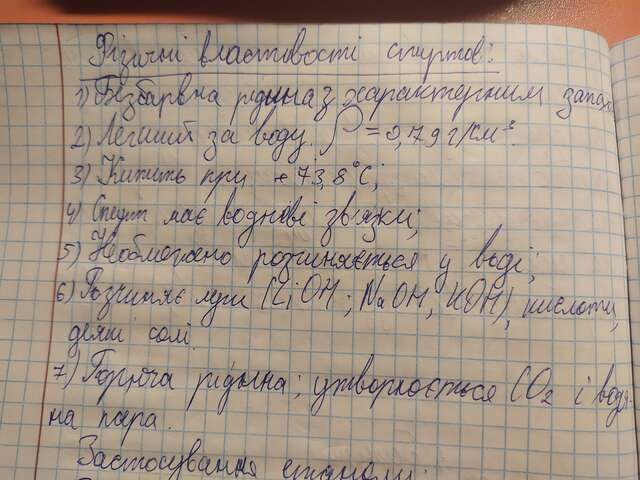 Фізичні властовості спиртов:
1) Безбарвна рідина з характерним запахо
2) Легший за воду. ρ = 0,79 г/см³.
3) Кипить при +73,8°C;
4) Спирт має воднові зв'язки;
5) Необмежено розчиняється у воді;
6) Розчиняє луги (LiOH; NaOH, KOH), кислоти,
деякі солі.
7) Горюча рідина; утворюється CO₂ і водя-
на пара.
Застосування етанолу: